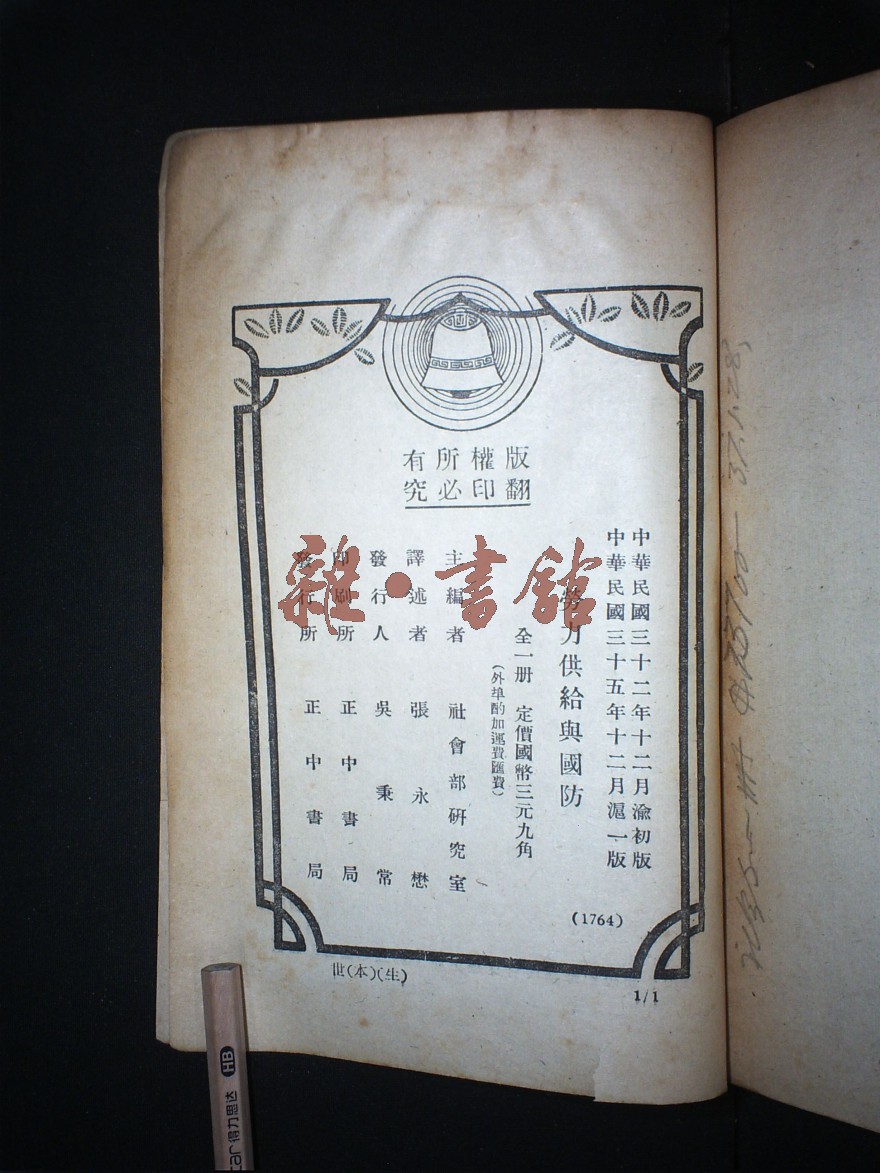 版權所有
翻印必究
中華民國三十二年十二月渝初版
中華民國三十五年十二月滬一版
勞力供給與國防
全一册 定價國幣三元九角
(外埠酌加運費匯費)
主編者 社會部研究室
譯述者 張永懋
發行人 吳秉常
印刷所 正中書局
發行所 正中書局
(1764)
世(本)(生)
1/1
雜·書館
HB
得力思达
37.1.28,